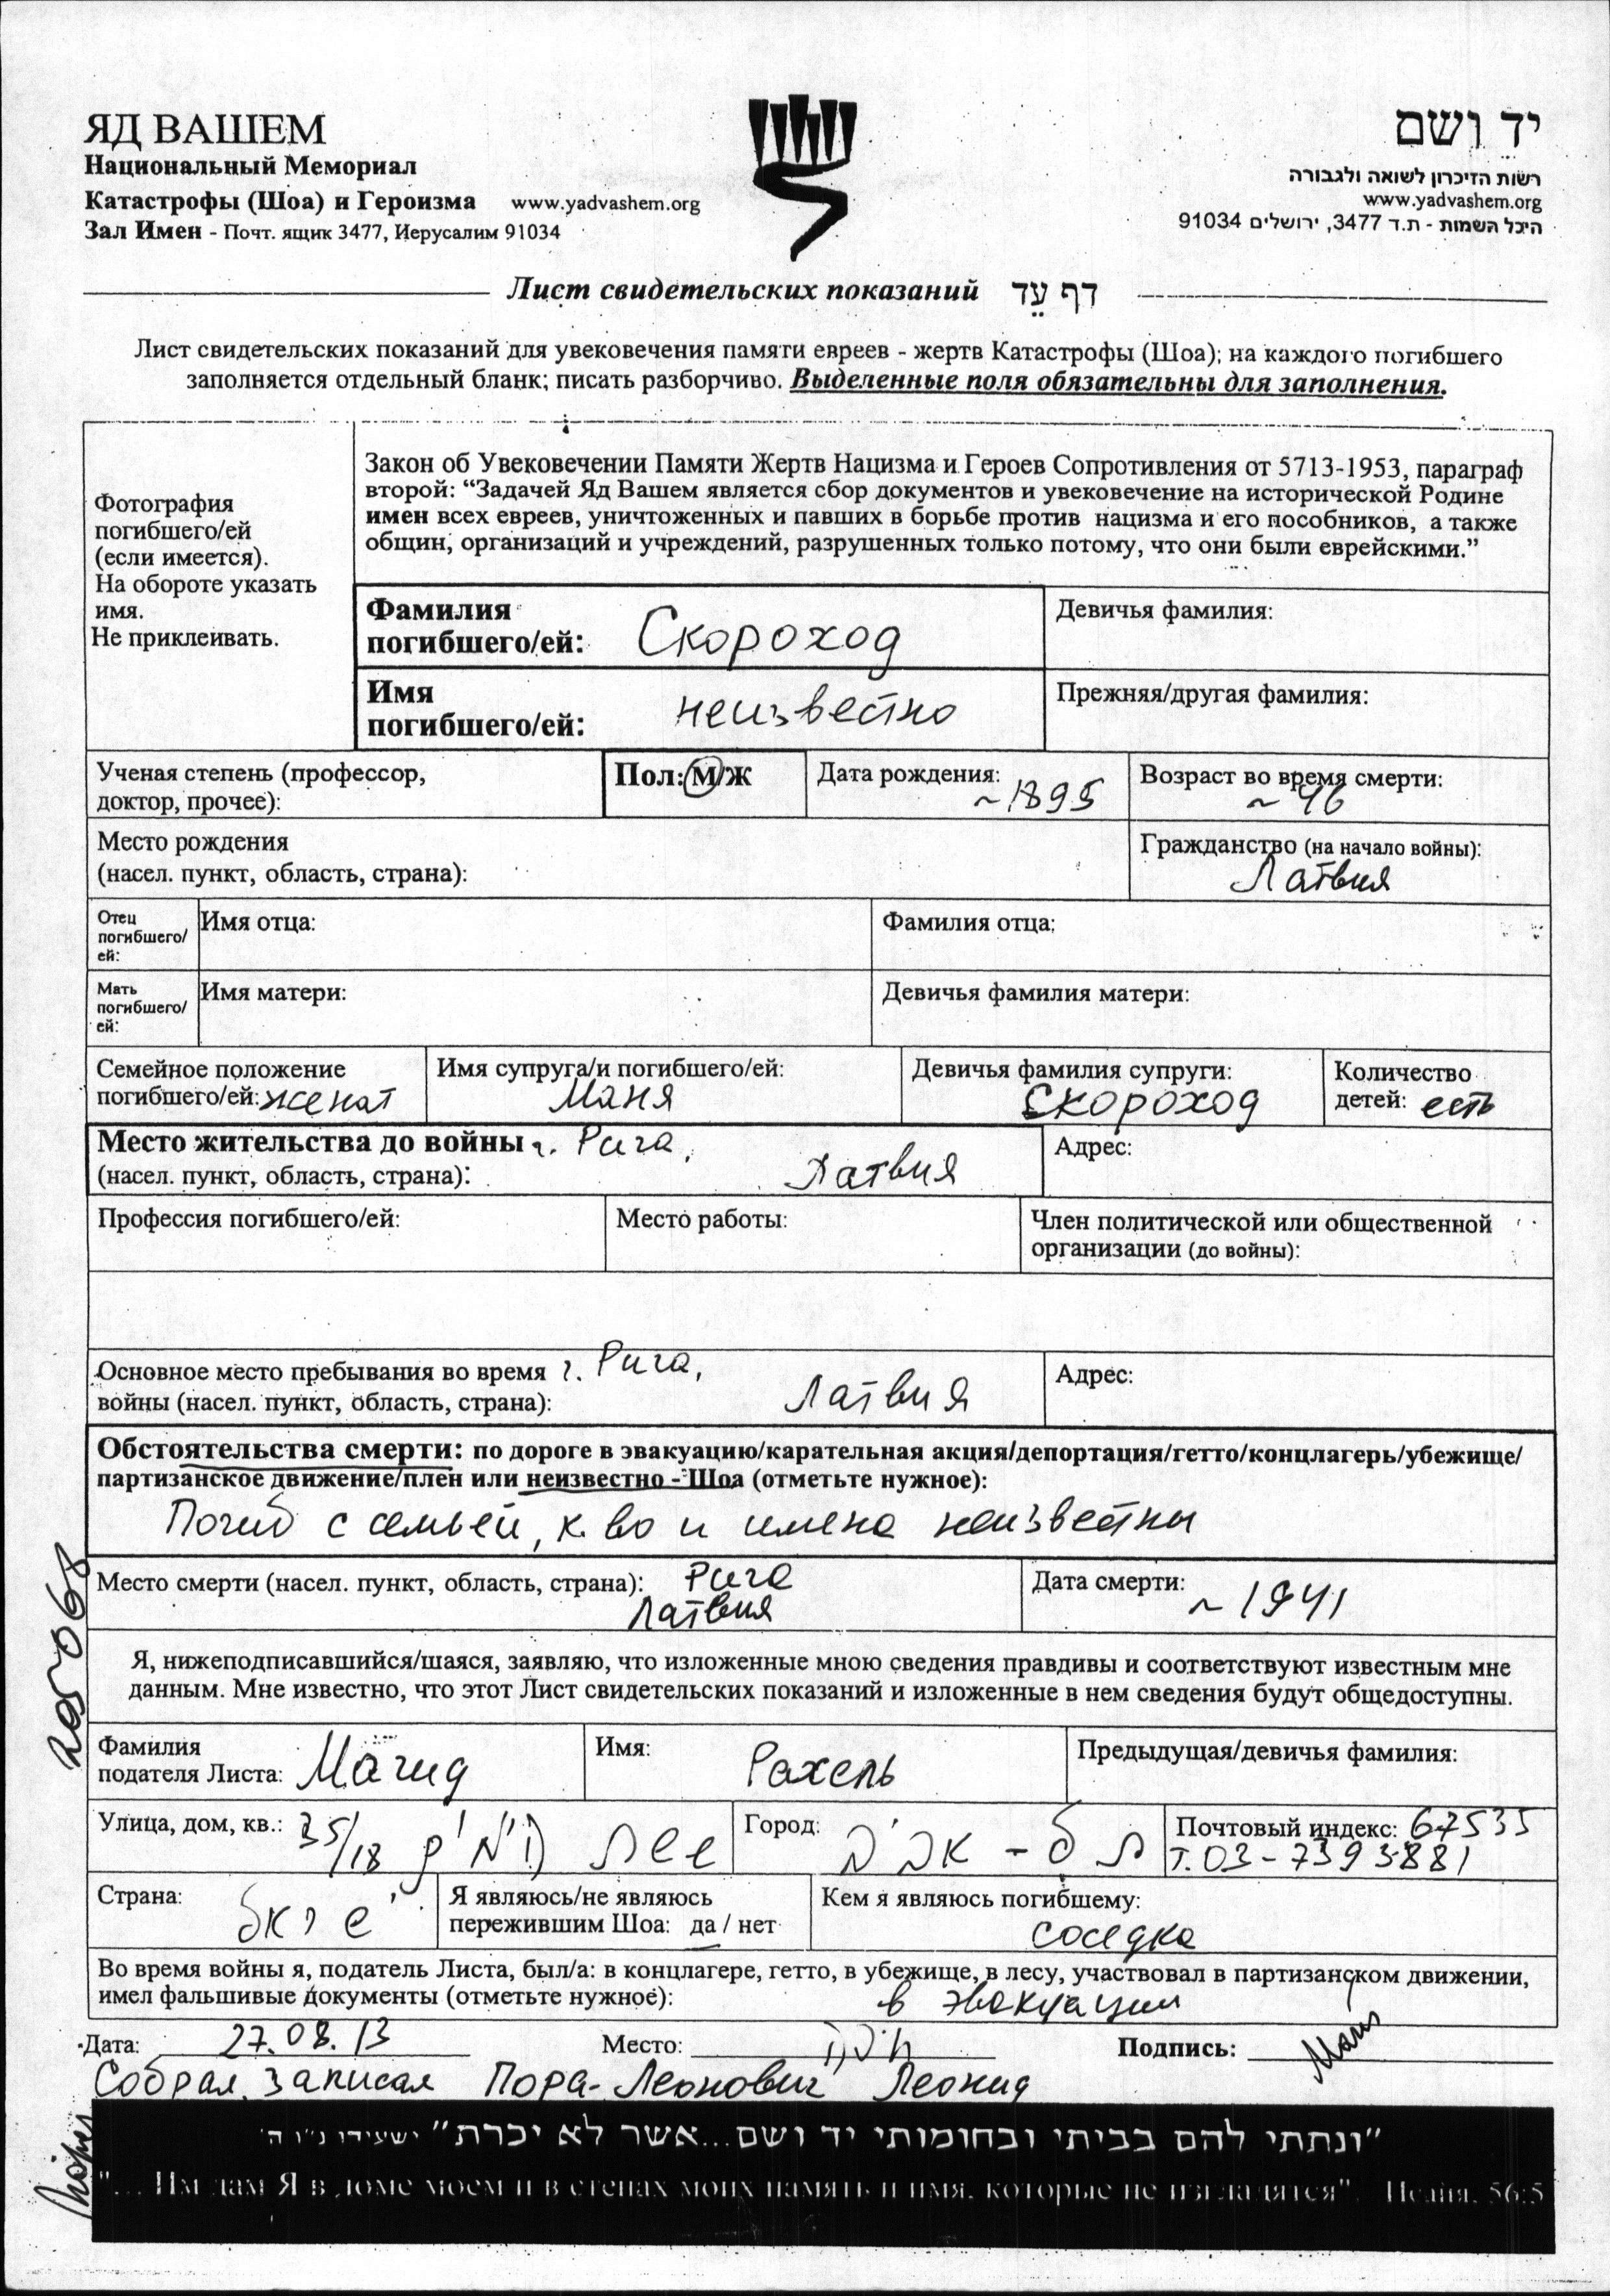 ЯД ВАШЕМ
Национальный Мемориал
Катастрофы (Шоа) и Героизма www.yadvashem.org
Зал Имен - Почт. ящик 3477, Иерусалим 91034
יד ושם
רשות הזיכרון לשואה ולגבורה
www.yadvashem.org
היכל השמות - ת.ד 3477, ירושלים 91034
Лист свидетельских показаний דף עֵד
Лист свидетельских показаний для увековечения памяти евреев - жертв Катастрофы (Шоа); на каждого погибшего
заполняется отдельный бланк; писать разборчиво. Выделенные поля обязательны для заполнения.
Фотография
погибшего/ей
(если имеется).
На обороте указать
имя.
Не приклеивать.
Закон об Увековечении Памяти Жертв Нацизма и Героев Сопротивления от 5713-1953, параграф
второй: “Задачей Яд Вашем является сбор документов и увековечение на исторической Родине
имен всех евреев, уничтоженных и павших в борьбе против нацизма и его пособников, а также
общин, организаций и учреждений, разрушенных только потому, что они были еврейскими.”
Фамилия
погибшего/ей: Скороход
Девичья фамилия:
Имя
погибшего/ей: неизвестно
Прежняя/другая фамилия:
Ученая степень (профессор,
доктор, прочее):
Пол: М/Ж
Дата рождения:
~1895
Возраст во время смерти:
~46
Место рождения
(насел. пункт, область, страна):
Гражданство (на начало войны):
Латвия
Отец
погибшего/
ей:
Имя отца:
Фамилия отца:
Мать
погибшего/
ей:
Имя матери:
Девичья фамилия матери:
Семейное положение
погибшего/ей: женат
Имя супруга/и погибшего/ей:
Маня
Девичья фамилия супруги:
Скороход
Количество
детей: есть
Место жительства до войны г. Рига,
(насел. пункт, область, страна): Латвия
Адрес:
Профессия погибшего/ей:
Место работы:
Член политической или общественной
организации (до войны):
Основное место пребывания во время г. Рига,
войны (насел. пункт, область, страна): Латвия
Адрес:
Обстоятельства смерти: по дороге в эвакуацию/карательная акция/депортация/гетто/концлагерь/убежище/
партизанское движение/плен или неизвестно - Шоа (отметьте нужное):
Погиб с семьей, к-во и имена неизвестны
Место смерти (насел. пункт, область, страна): Рига
Латвия
Дата смерти:
~ 1941
205068
Я, нижеподписавшийся/шаяся, заявляю, что изложенные мною сведения правдивы и соответствуют известным мне
данным. Мне известно, что этот Лист свидетельских показаний и изложенные в нем сведения будут общедоступны.
Фамилия
подателя Листа: Магид
Имя: Рахель
Предыдущая/девичья фамилия:
Улица, дом, кв.: 35/18
Город:
Почтовый индекс: 67535
т. 03-7393881
Страна:
Я являюсь/не являюсь
пережившим Шоа: да / нет
Кем я являюсь погибшему:
соседка
Во время войны я, податель Листа, был/а: в концлагере, гетто, в убежище, в лесу, участвовал в партизанском движении,
имел фальшивые документы (отметьте нужное): в эвакуации
Дата: 27.08.13 Место: Подпись:
Собрал, записал Пора-Леонович Леонид
"ונתתי להם בביתי ובחומותי יד ושם...אשר לא יכרת" ישעיהו נ"ו ה'
"... Им дам Я в доме моем и в стенах моих память и имя, которые не изгладятся". Исайя, 56:5